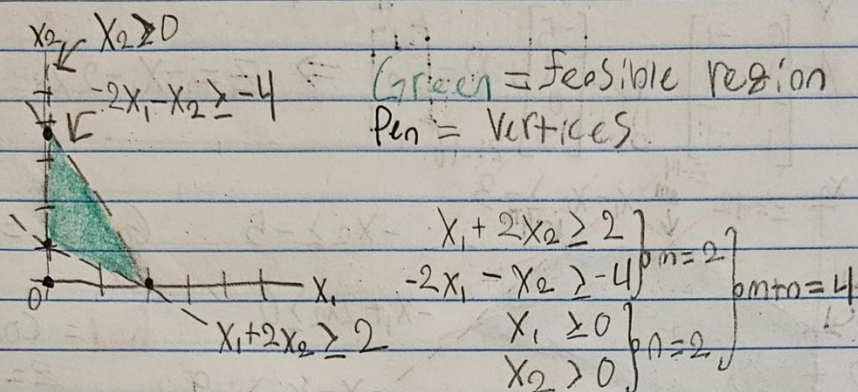 x₂
x₂ ≥ 0
-2x₁ - x₂ ≥ -4
Green = feasible region
Pen = Vertices
0
x₁
x₁ + 2x₂ ≥ 2
x₁ + 2x₂ ≥ 2
-2x₁ - x₂ ≥ -4
m = 2
x₁ ≥ 0
x₂ ≥ 0
n = 2
m+n = 4